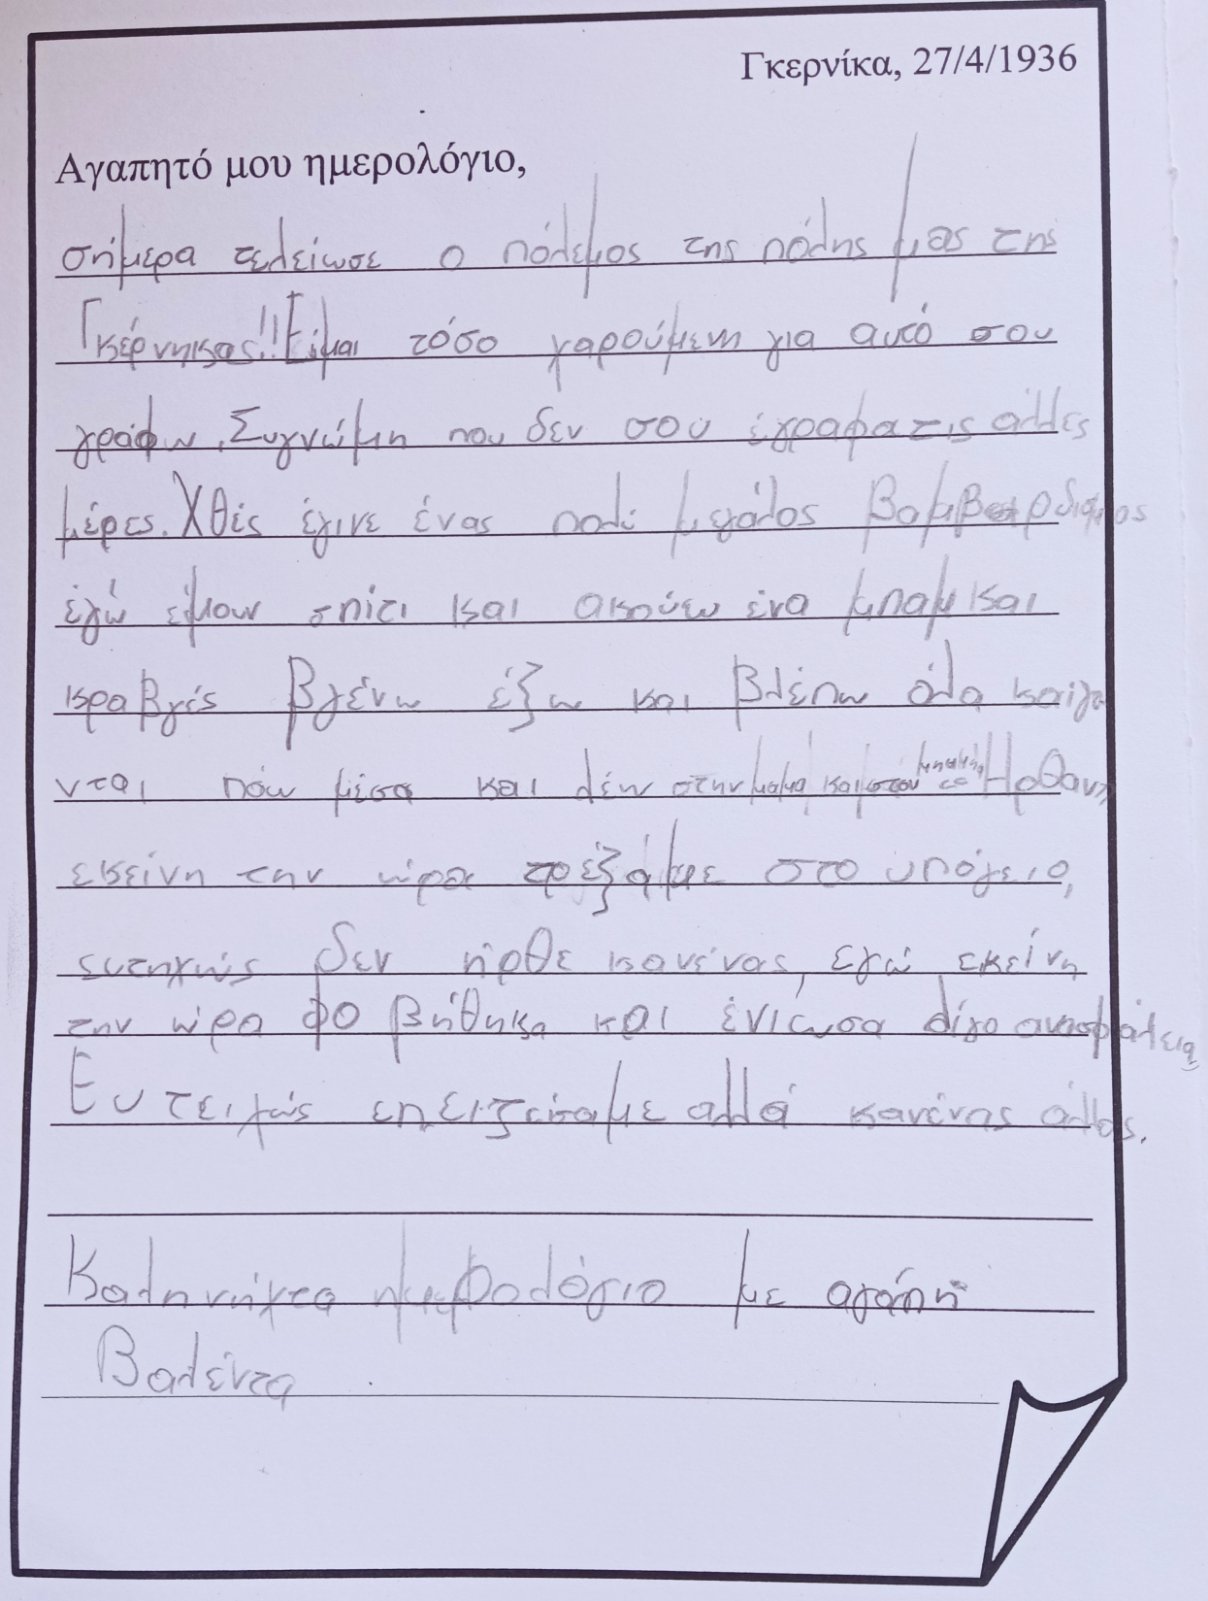 Γκερνίκα, 27/4/1936
Αγαπητό μου ημερολόγιο,
σήμερα τελείωσε ο πόλεμος της πόλης μας της
Γκέρνηκας!! Είμαι τόσο χαρούμενη για αυτό σου
γράφω. Συγνώμη που δεν σου έγραφα τις άλλες
μέρες. Χθές έγινε ένας πολύ μεγάλος
έγώ είμουν σπίτι και ακούω ένα μπαμ και
κραβγές βγένω έξω και βλέπω όλα καίγο
νται πάω μέσα και λέω στην μαμά και στον μπαμπά το Ηρθαν
εκείνη την ώρα τρέξαμε στο υπόγειο,
ευτηχώς δεν ήρθε κανένας, εγώ εκείνη
την ώρα φοβήθηκα και ένιωσα λίγο ανασφάλεια
Ευτειχώς επειζείσαμε αλλά κανένας άλλος.
Καληνήχτα ημερολόγιο με αγάπη
Βαλέντα